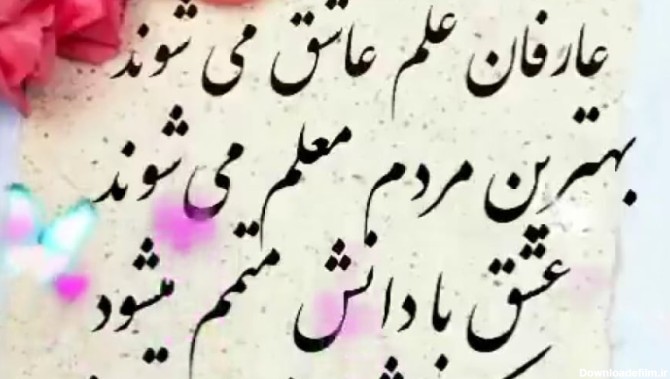 عارفان علم عاشق می شوند
بهترین مردم معلم می شوند
عشق با دانش متمم میشود
Downloadefilm.ir